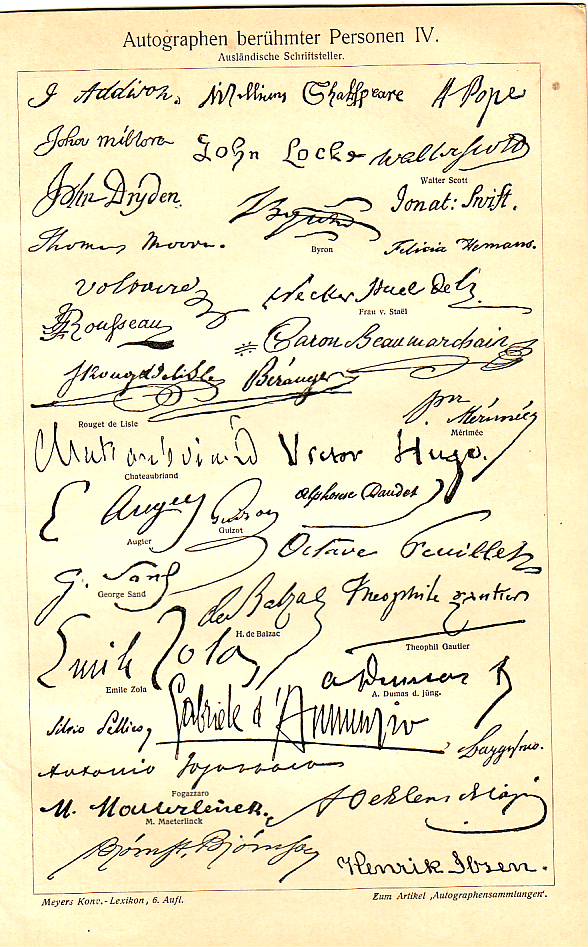 Autographen berühmter Personen IV.
Ausländische Schriftsteller.
J Addison. William Shakspeare A Pope
John Milton John Locke Walter Scott
Walter Scott
John Dryden. Byron Jonat: Swift.
Byron
Thomas Moore. Felicia Hemans.
Voltaire Necker Stael de H.
Frau v. Staël
JJ Rousseau Caron Beaumarchais
Rouget de Lisle Béranger
Rouget de Lisle
Pr Mérimée
Mérimée
Chateaubriand Victor Hugo.
Chateaubriand
E Augier Guizot Alphonse Daudet
Augier
Guizot
Octave Feuillet
G. Sand
George Sand
de Balzac Theophile Gautier
H. de Balzac
Theophil Gautier
Emile Zola
Emile Zola
A Dumas f
A. Dumas d. jüng.
Silvio Pellico, Gabriele d'Annunzio
Antonio Fogazzaro
Fogazzaro
M. Maeterlinck.
M. Maeterlinck
A Oehlenschläger
Björnst. Björnson
Henrik Ibsen.
Meyers Konv.-Lexikon, 6. Aufl.
Zum Artikel ‚Autographensammlungen‘.